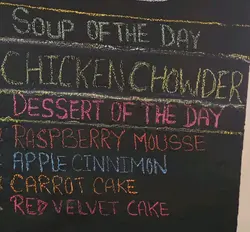 SOUP OF THE DAY
CHICKEN CHOWDER
DESSERT OF THE DAY
RASPBERRY MOUSSE
APPLE CINNIMON
CARROT CAKE
RED VELVET CAKE